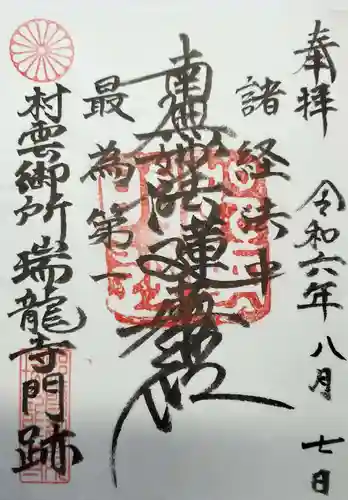 奉拝
令和六年 八月 七日
諸経法中
南無妙法蓮華経
最為第一
村雲御所 瑞龍寺門跡